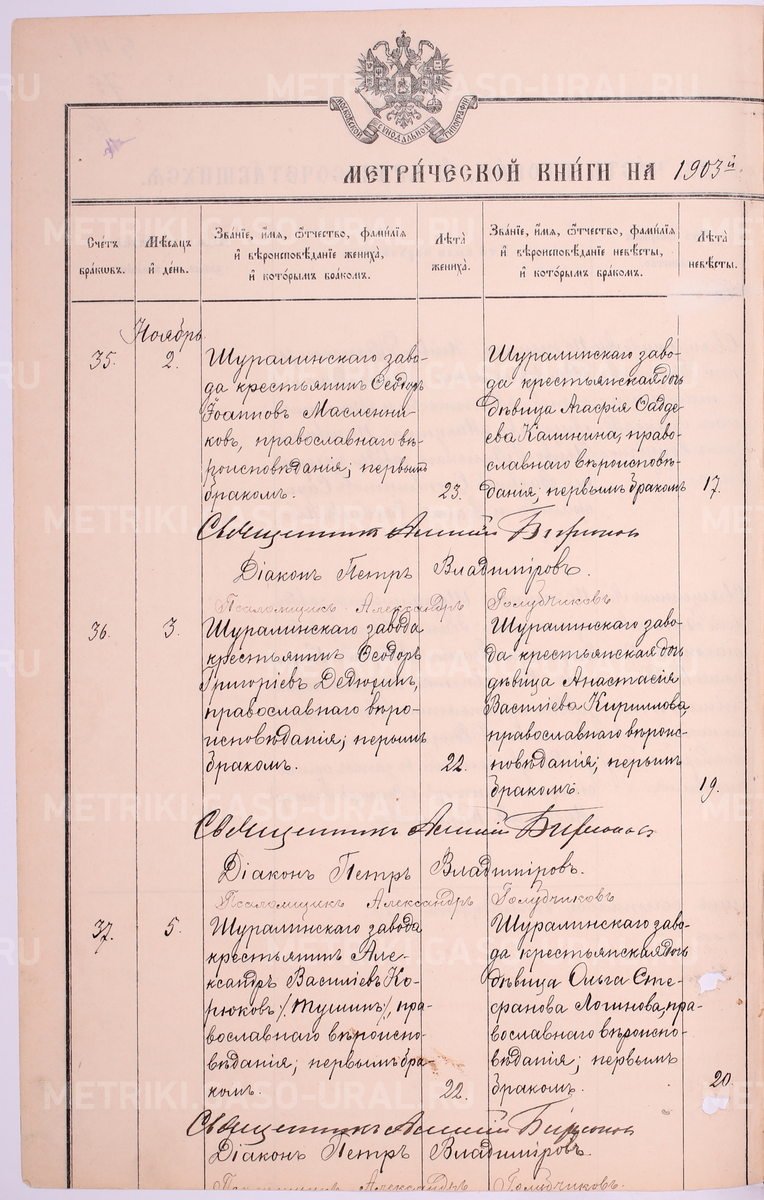 МОСКОВСКОЙ СѴНОДАЛЬНОЙ ТИПОГРАФІИ
МЕТРИ́ЧЕСКОЙ КНИ́ГИ НА 1903й
Сче́тъ бра́кѡвъ.
Мѣ́сѧцъ и҆ де́нь.
Зва́нїе, и҆́мѧ, ѻ҆́тчество, фами́лїѧ и҆ вѣроисповѣ́данїе жениха̀, и҆ кото́рымъ бра́комъ.
Лѣ́та жениха̀.
Зва́нїе, и҆́мѧ, ѻ҆́тчество, фами́лїѧ и҆ вѣроисповѣ́данїе невѣ́сты, и҆ кото́рымъ бра́комъ.
Лѣ́та невѣ́сты.
Ноябрь
35. 2.
Шуралинскаго заво-
да крестьянинъ Ѳеодоръ
Іоанновъ Масленни-
ковъ, православнаго вѣ-
роисповѣданія; первымъ
бракомъ.
23.
Шуралинскаго заво-
да крестьянская дочь
дѣвица Агафія Фадде-
ева Калинина, право-
славнаго вѣроисповѣ-
данія; первымъ бракомъ
17.
Священникъ
Діаконъ Петръ Владиміровъ.
Псаломщикъ Александръ Голубчиковъ
36. 3.
Шуралинскаго завода
крестьянинъ Ѳеодоръ
Григоріевъ Дедюхинъ,
православнаго вѣро-
исповѣданія; первымъ
бракомъ.
22.
Шуралинскаго заво-
да крестьянская дочь
дѣвица Анастасія
Василіева Кириллова,
православнаго вѣроис-
повѣданія; первымъ
бракомъ.
19.
Священникъ
Діаконъ Петръ Владиміровъ.
Псаломщикъ Александръ Голубчиковъ
37. 5.
Шуралинскаго завода
крестьянинъ Але-
ксандръ Василіевъ Ко-
рюковъ /Тушинъ/, пра-
вославнаго вѣроиспо-
вѣданія; первымъ бра-
комъ.
22.
Шуралинскаго заво-
да крестьянская дочь
дѣвица Ольга Сте-
фанова Логинова, пра-
вославнаго вѣроиспо-
вѣданія; первымъ
бракомъ.
20.
Священникъ
Діаконъ Петръ Владиміровъ.
Псаломщикъ Александръ Голубчиковъ.
METRIKI.GASO-URAL.RU